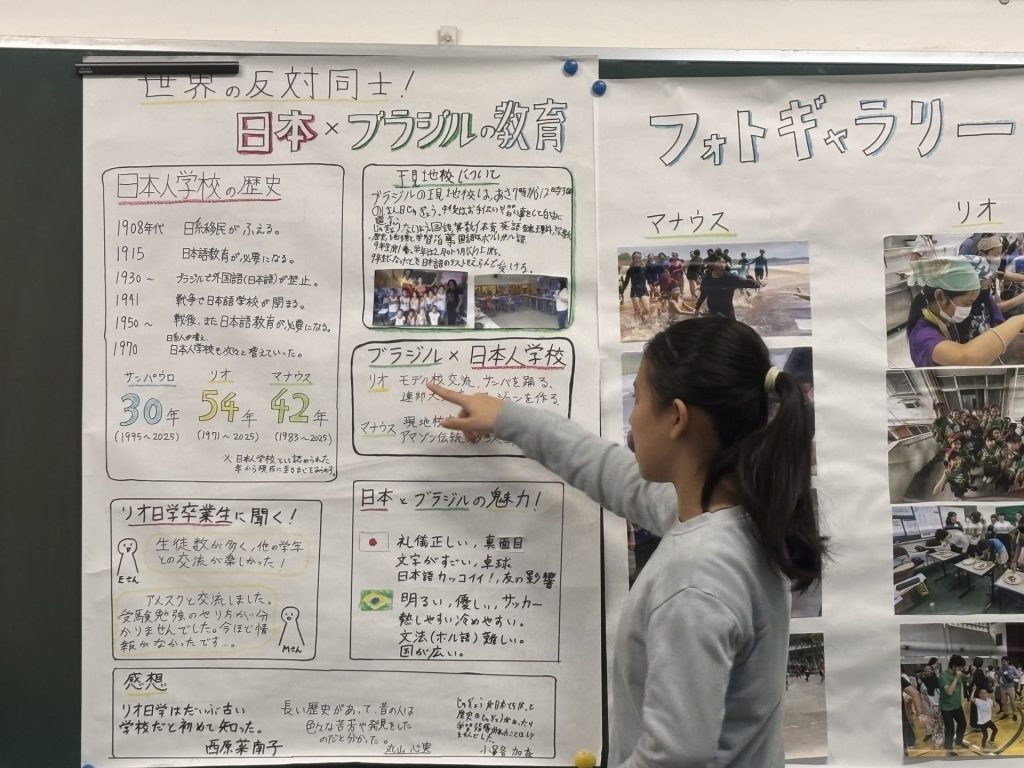 世界の反対同士!
日本×ブラジルの教育
日本人学校の歴史
1908年代 日系移民がふえる。
1915 日本語教育が必要になる。
1930~ ブラジルで外国語(日本語)が禁止。
1941 戦争で日本語学校が閉まる。
1950~ 戦後、また日本語教育が必要になる。
1970 日本人学校も次々と増えていった。
サンパウロ リオ マナウス
30年 54年 42年
(1995~2025) (1971~2025) (1983~2025)
※日本人学校として認められた
現地校について
ブラジルの現地校は、あさ7時から12時
ブラジル×日本人学校
リオ モデル校交流、サンバを踊る、
連邦大 ジョンを作る。
マナウス 現地校
アマゾン伝統
リオ日学卒業生に聞く!
生徒数が多く、他の学年
との交流が楽しかった!
Eさん
アメスクと交流しました。
受験勉強のやり方が分
かりませんでした。今ほど情
報がなかったです…。
Mさん
日本とブラジルの魅力!
礼儀正しい,真面目
文字がすごい,卓球
日本語カッコイイ!,友の影響
明るい,優しい,サッカー
熱しやすい冷めやすい。
文法(ポル語)難しい。
国が広い。
感想
リオ日学はだいぶ古い
学校だと初めて知った。
西原菜南子
長い歴史があって、昔の人は
色々な苦労や発見をした
のだと分かった。
丸山心実
フォトギャラリー
マナウス
リオ